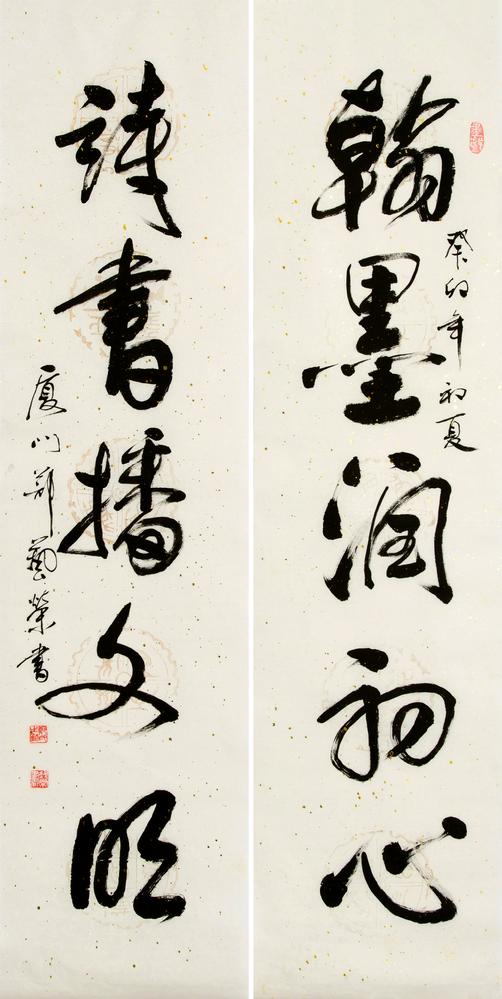 翰墨润初心
癸卯年初夏
詩書播文明
厦门郑艺荣書